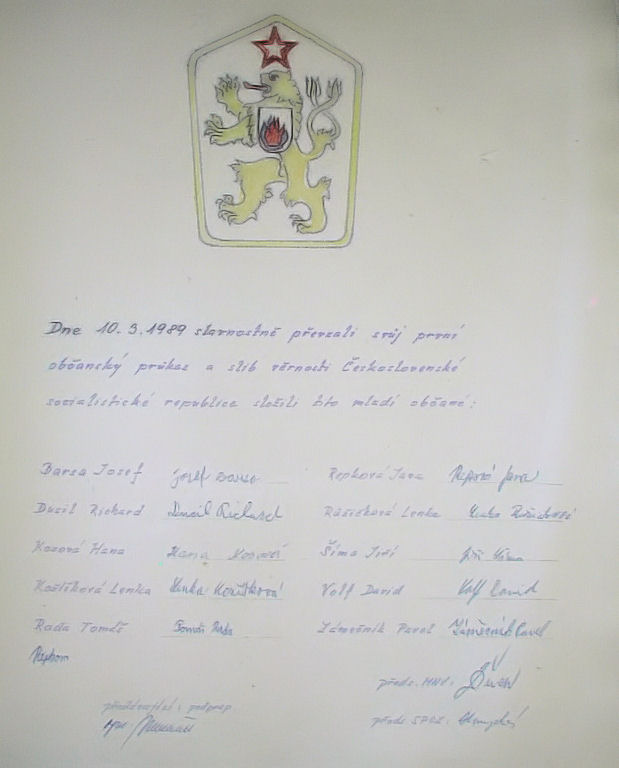 Dne 10.3.1989 slavnostně převzali svůj první
občanský průkaz a slib věrnosti Československé
socialistické republice složili tito mladí občané:
Barsa Josef Josef Repková Jana Jana
Dusil Richard Dusil Richard Růžičková Lenka Lenka Růžičková
Kosová Hana Hana Kosová Šíma Jiří Jiří Šíma
Košťíková Lenka Lenka Volf David Volf David
Rada Tomáš Tomáš Rada Zámečník Pavel Zámečník Pavel
předs. MNV:
předs. SPOZ: